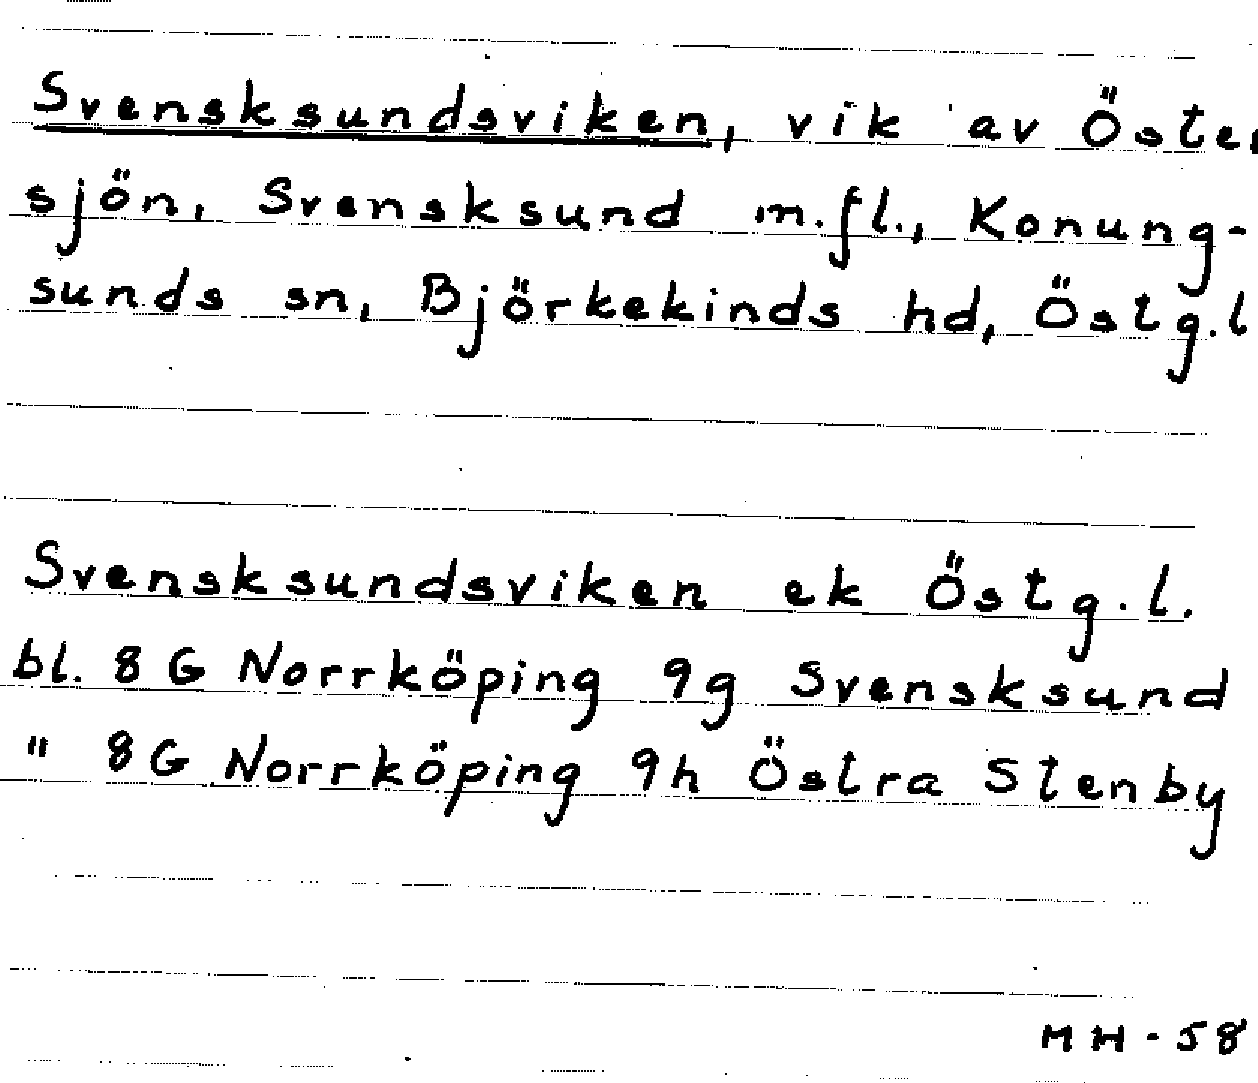 Svensksundsviken, vik av Öster
sjön, Svensksund m.fl., Konung-
sunds sn, Björkekinds hd, Östg.l
Svensksundsviken ek Östg.l.
bl. 8 G Norrköping 9g Svensksund
" 8G Norrköping 9h Östra Stenby
MH-58